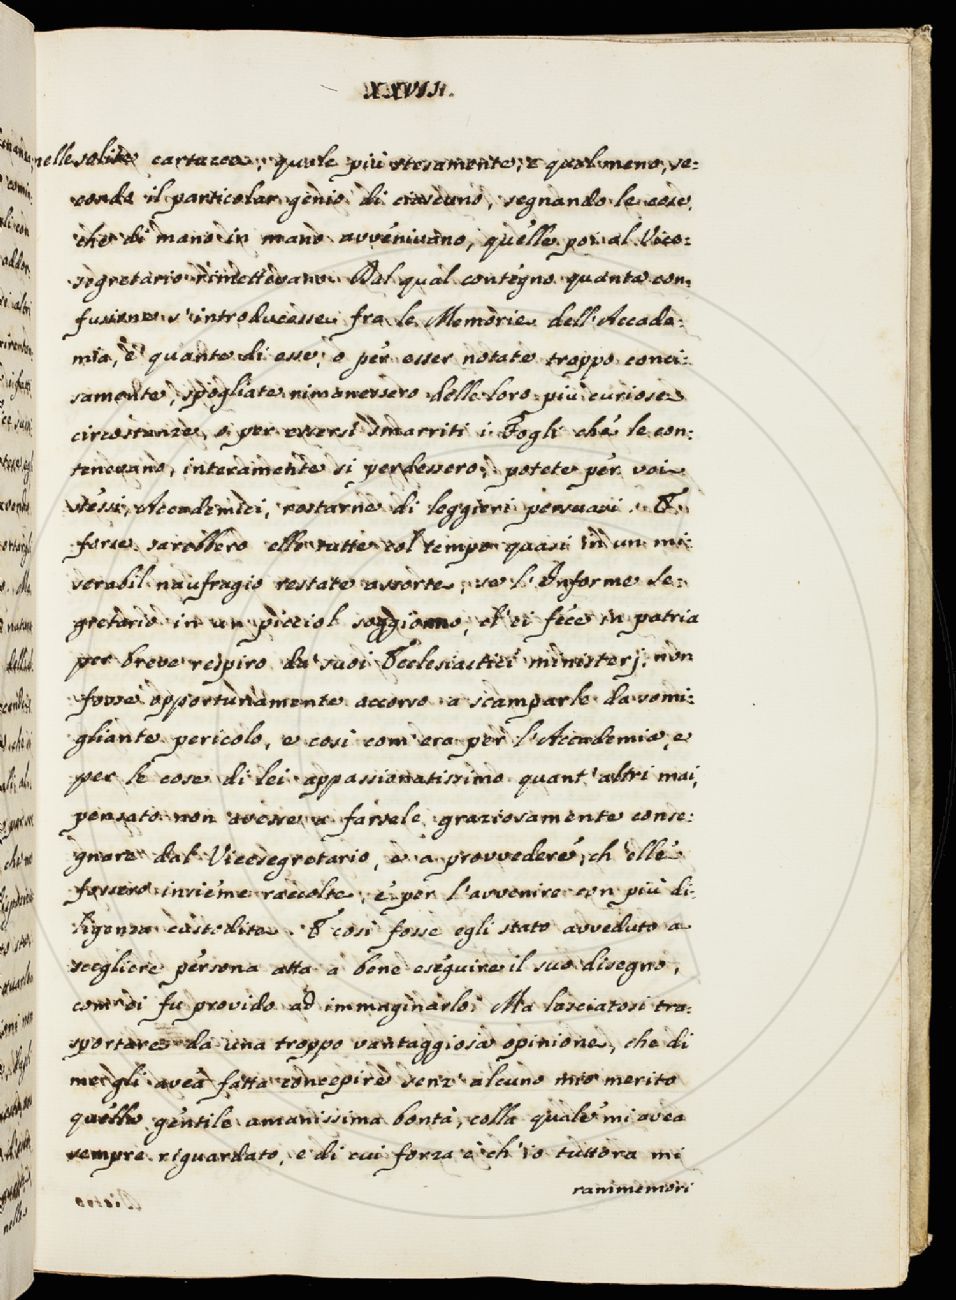 XXVII.
nelle solite cartucce, quale più stesamente, e qual meno, se-
condo il particolar genio di ciascuno, segnando le cose,
che di mano in mano avvenivano, quelle poi al Vice-
segretario rimettevano. Dal qual contegno quanta con-
fusione s'introducesse fra le Memorie dell'Accade-
mia, e quante di esse, o per esser notate troppo conci-
samente, spogliate rimanessero delle loro più curiose
circostanze, o per essersi smarriti i Fogli che le con-
tenevano, interamente si perdessero, potete per voi
stessi, Accademici, restarne di leggieri persuasi. E
forse sarebbero elle tutte col tempo quasi in un mi-
serabil naufragio restate assorte, se l'Informe Se-
gretario in un picciol soggiorno, ch'ei fece in patria
per breve respiro da' suoi Ecclesiastici ministerj, non
fosse opportunamente accorso a scamparle da somi-
gliante pericolo, e così com'era per l'Accademia, e
per le cose di lei appassionatissimo quant'altri mai,
pensato non avesse a farsele graziosamente conse-
gnare dal Vicesegretario, e a provvedere, ch'elle
fossero insieme raccolte, e per l'avvenire con più di-
ligenza custodite. E così fosse egli stato avveduto a
scegliere persona atta a bene eseguire il suo disegno,
com'ei fu provido ad immaginarlo. Ma lasciatosi tra-
sportare da una troppo vantaggiosa opinione, che di
me gli avea fatta concepire senz'alcuno mio merito
quella gentile umanissima bontà, colla quale mi avea
sempre riguardato, e di cui forza è ch'io tuttora mi
rammemori